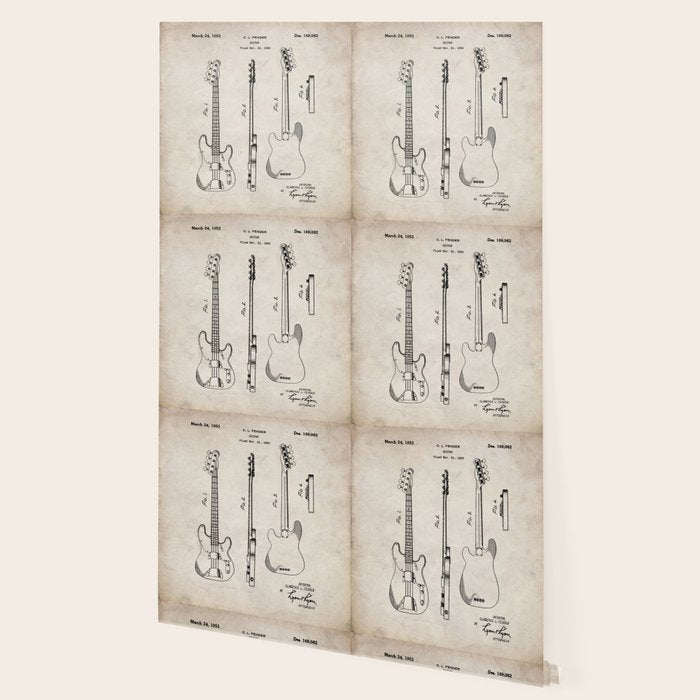 March 24, 1953 Des. 169,062
C. L. FENDER
GUITAR
Filed Nov. 21, 1952
Fig. 1.
Fig. 2.
Fig. 3.
Fig. 4.
INVENTOR.
CLARENCE L. FENDER
BY
ATTORNEYS
March 24, 1953 Des. 169,062
C. L. FENDER
GUITAR
Filed Nov. 21, 1952
Fig. 1.
Fig. 2.
Fig. 3.
Fig. 4.
INVENTOR.
CLARENCE L. FENDER
BY
ATTORNEYS
March 24, 1953 Des. 169,062
C. L. FENDER
GUITAR
Filed Nov. 21, 1952
Fig. 1.
Fig. 2.
Fig. 3.
Fig. 4.
INVENTOR.
CLARENCE L. FENDER
BY
ATTORNEYS
March 24, 1953 Des. 169,062
C. L. FENDER
GUITAR
Filed Nov. 21, 1952
Fig. 1.
Fig. 2.
Fig. 3.
Fig. 4.
INVENTOR.
CLARENCE L. FENDER
BY
ATTORNEYS
March 24, 1953 Des. 169,062
C. L. FENDER
GUITAR
Filed Nov. 21, 1952
Fig. 1.
Fig. 2.
Fig. 3.
Fig. 4.
INVENTOR.
CLARENCE L. FENDER
BY
ATTORNEYS
March 24, 1953 Des. 169,062
C. L. FENDER
GUITAR
Filed Nov. 21, 1952
Fig. 1.
Fig. 2.
Fig. 3.
Fig. 4.
INVENTOR.
CLARENCE L. FENDER
BY
ATTORNEYS
March 24, 1953 Des. 169,062
C. L. FENDER
March 24, 1953 Des. 169,062
C. L. FENDER
GUITAR